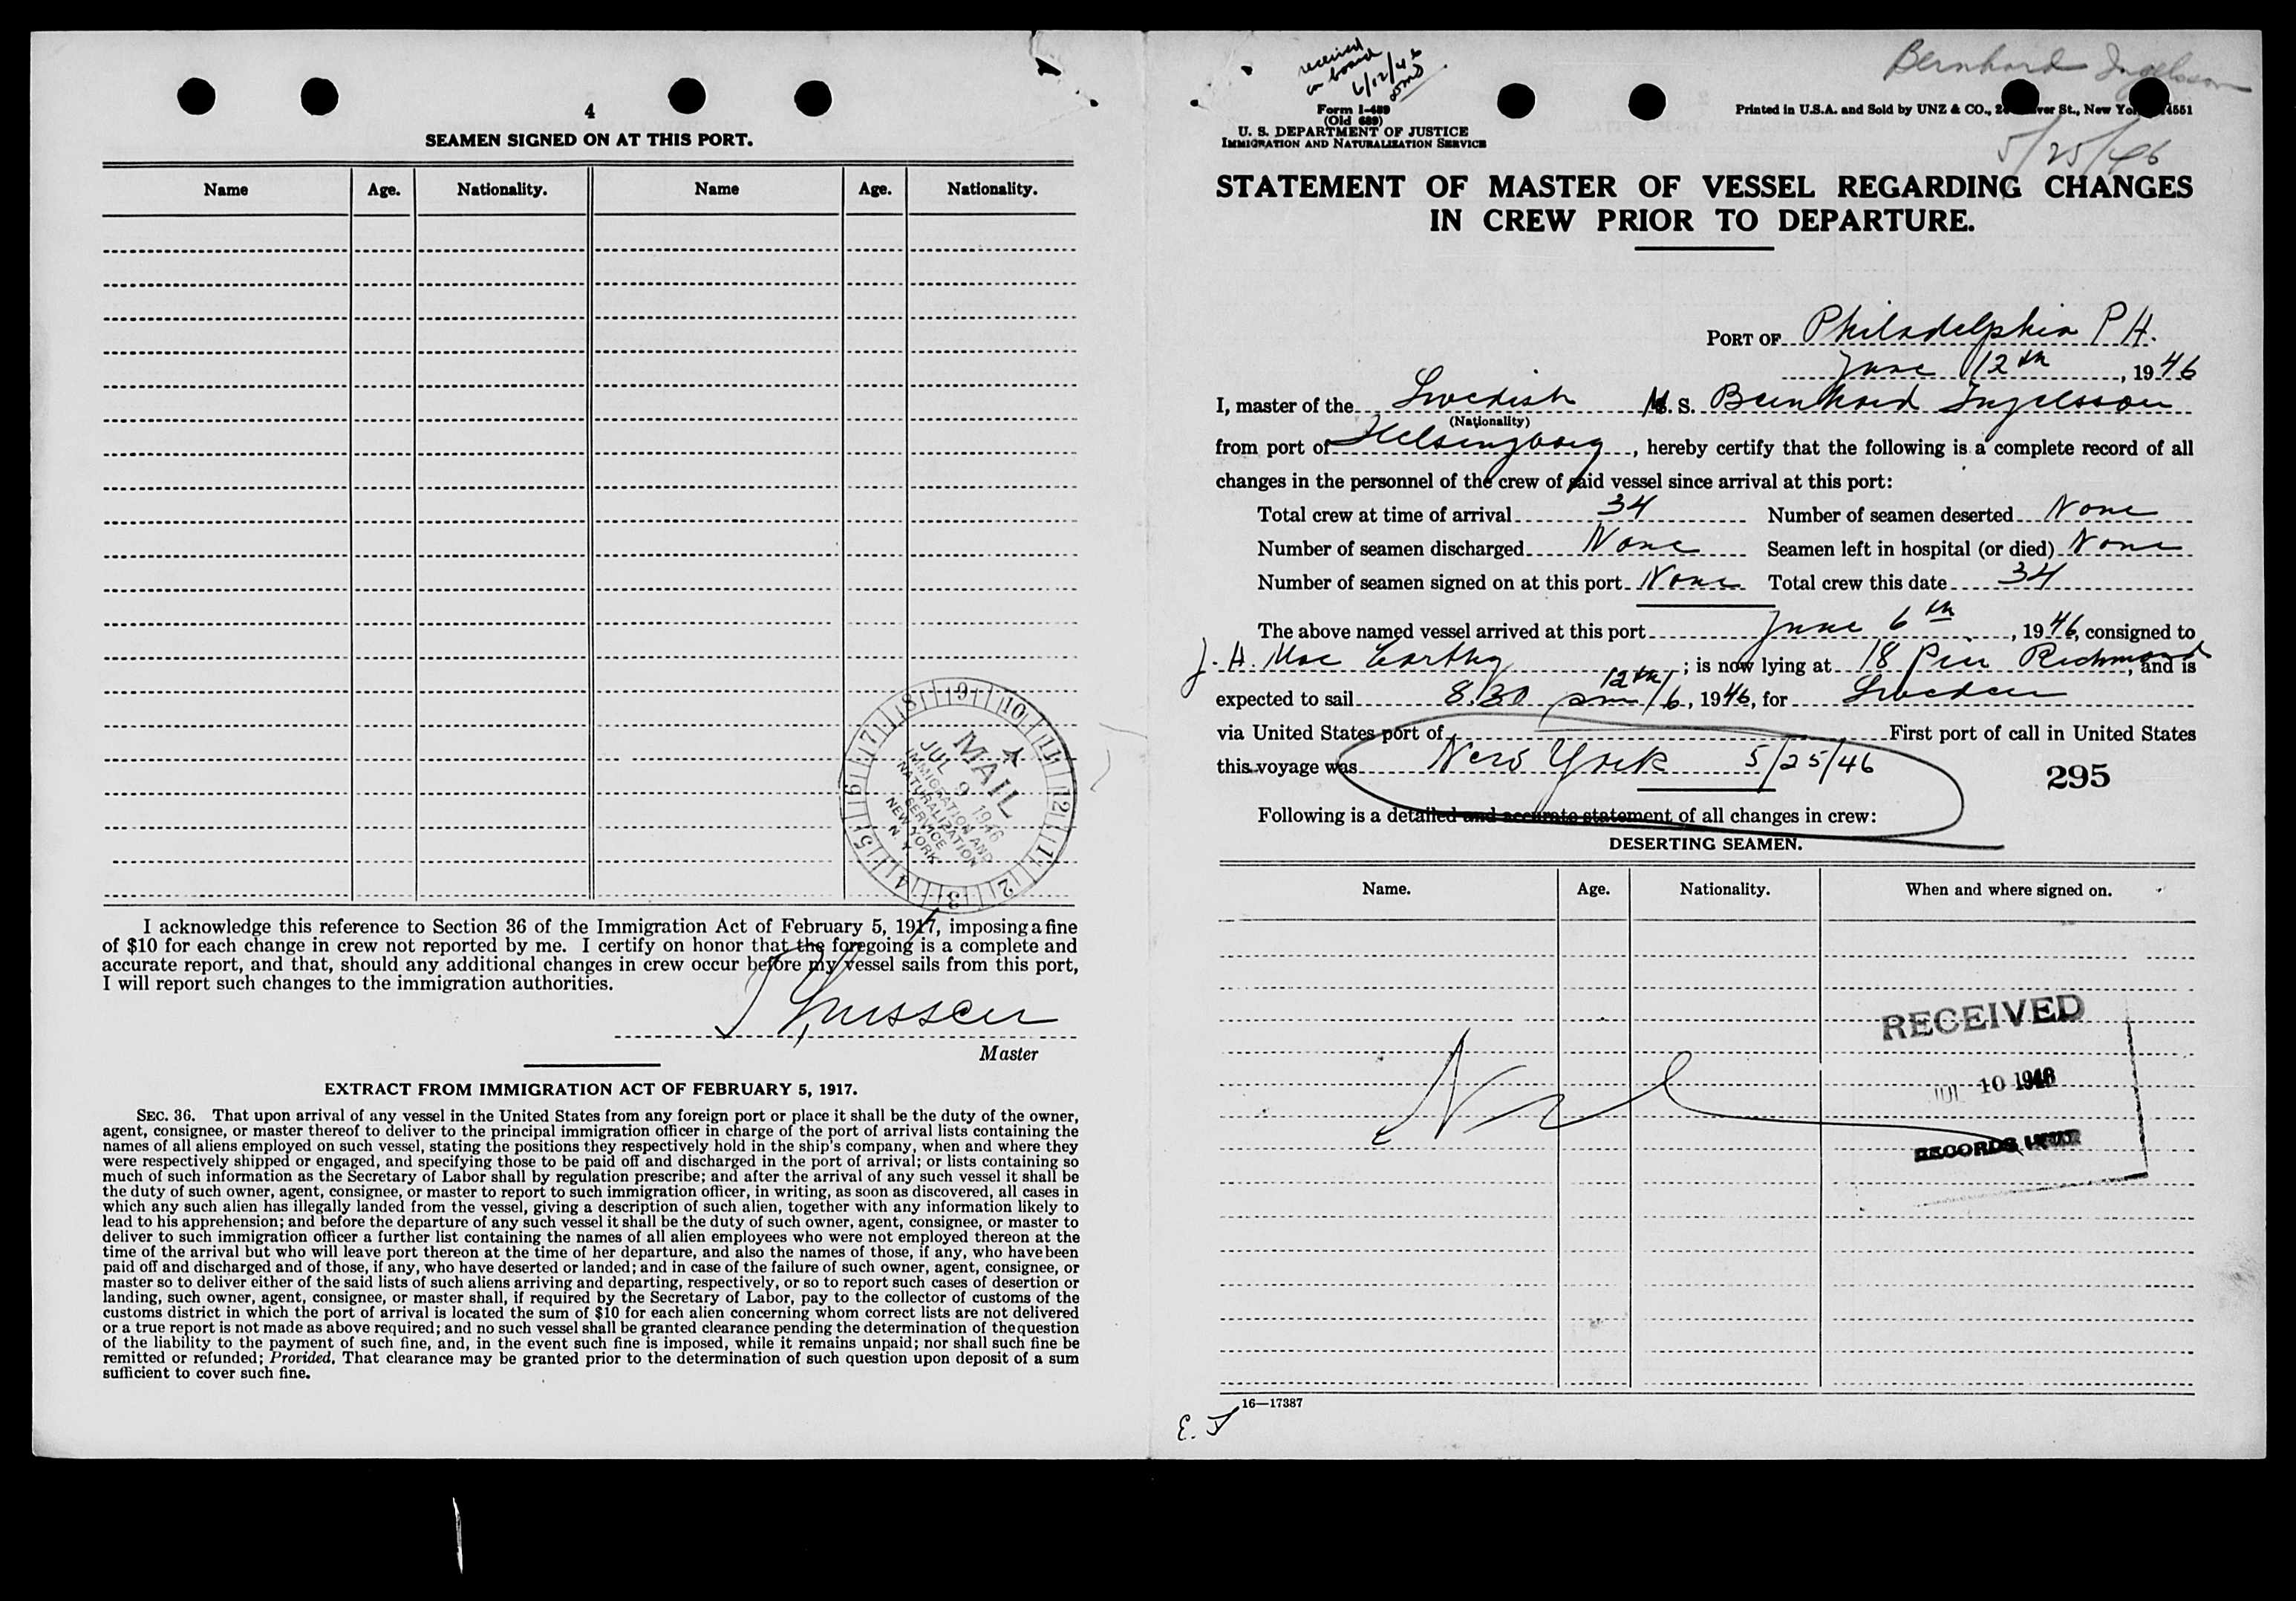 4
SEAMEN SIGNED ON AT THIS PORT.
Name Age. Nationality. Name Age. Nationality.
MAIL
JUL 9 1946
IMMIGRATION AND
NATURALIZATION
SERVICE
NEW YORK
N Y
I acknowledge this reference to Section 36 of the Immigration Act of February 5, 1917, imposing a fine
of $10 for each change in crew not reported by me. I certify on honor that the foregoing is a complete and
accurate report, and that, should any additional changes in crew occur before my vessel sails from this port,
I will report such changes to the immigration authorities.
Master
EXTRACT FROM IMMIGRATION ACT OF FEBRUARY 5, 1917.
SEC. 36. That upon arrival of any vessel in the United States from any foreign port or place it shall be the duty of the owner,
agent, consignee, or master thereof to deliver to the principal immigration officer in charge of the port of arrival lists containing the
names of all aliens employed on such vessel, stating the positions they respectively hold in the ship's company, when and where they
were respectively shipped or engaged, and specifying those to be paid off and discharged in the port of arrival; or lists containing so
much of such information as the Secretary of Labor shall by regulation prescribe; and after the arrival of any such vessel it shall be
the duty of such owner, agent, consignee, or master to report to such immigration officer, in writing, as soon as discovered, all cases in
which any such alien has illegally landed from the vessel, giving a description of such alien, together with any information likely to
lead to his apprehension; and before the departure of any such vessel it shall be the duty of such owner, agent, consignee, or master to
deliver to such immigration officer a further list containing the names of all alien employees who were not employed thereon at the
time of the arrival but who will leave port thereon at the time of her departure, and also the names of those, if any, who have been
paid off and discharged and of those, if any, who have deserted or landed; and in case of the failure of such owner, agent, consignee, or
master so to deliver either of the said lists of such aliens arriving and departing, respectively, or so to report such cases of desertion or
landing, such owner, agent, consignee, or master shall, if required by the Secretary of Labor, pay to the collector of customs of the
customs district in which the port of arrival is located the sum of $10 for each alien concerning whom correct lists are not delivered
or a true report is not made as above required; and no such vessel shall be granted clearance pending the determination of the question
of the liability to the payment of such fine, and, in the event such fine is imposed, while it remains unpaid; nor shall such fine be
remitted or refunded; Provided, That clearance may be granted prior to the determination of such question upon deposit of a sum
sufficient to cover such fine.
received
on board
6/12/46
Bernhard Ingelsson
5/25/46
Form I-489
(Old 689)
U. S. DEPARTMENT OF JUSTICE
IMMIGRATION AND NATURALIZATION SERVICE
Printed in U.S.A. and Sold by UNZ & CO., St., New
STATEMENT OF MASTER OF VESSEL REGARDING CHANGES
IN CREW PRIOR TO DEPARTURE.
PORT OF Philadelphia PA.
June 12th, 1946
I, master of the Swedish M. S. Bernhard Ingelsson
(Nationality)
from port of Helsingborg, hereby certify that the following is a complete record of all
changes in the personnel of the crew of said vessel since arrival at this port:
Total crew at time of arrival 34 Number of seamen deserted None
Number of seamen discharged None Seamen left in hospital (or died) None
Number of seamen signed on at this port None Total crew this date 34
The above named vessel arrived at this port June 6th, 1946, consigned to
J. H. Mac Carthy; is now lying at 18 Pier Richmond, and is
expected to sail 8.30 pm 12th/6, 1946, for Sweden
via United States port of First port of call in United States
this voyage was New York 5/25/46
295
Following is a detailed and accurate statement of all changes in crew:
DESERTING SEAMEN.
Name. Age. Nationality. When and where signed on.
RECEIVED
JUL 10 1946
RECORDS UNIT
16—17387